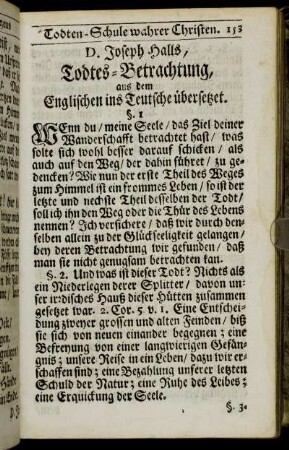 Todten-Schule wahrer Christen. 153
D. Joseph Halls,
Todtes-Betrachtung,
aus dem
Englischen ins Teutsche übersetzet.
§. 1
WEnn du / meine Seele / das Ziel deiner
Wanderschafft betrachtet hast / was
solte sich wohl besser darauf schicken / als
auch auf den Weg, der dahin führet / zu ge-
dencken? Wie nun der erste Theil des Weges
zum Himmel ist ein frommes Leben / so ist der
letzte und nechste Theil desselben der Todt /
soll ich ihn den Weg oder die Thür des Lebens
nennen? Ich versichere / daß wir durch den-
selben allein zu der Glückseeligkeit gelangen /
bey deren Betrachtung wir gefunden / daß
man sie nicht genugsam betrachten kan.
§. 2. Und was ist dieser Todt? Nichts als
ein Niederlegen derer Splitter / davon un-
ser irrdisches Hauß dieser Hütten zusammen
gesetzet war. 2. Cor. 5 v. 1. Eine Entschei-
dung zweyer grossen und alten Feinden / biß
sie sich von neuen einander begegnen; eine
Befreyung von einer langwierigen Gefäng-
nis; unsere Reise in ein Leben / dazu wir er-
schaffen sind; eine Bezahlung unserer letzten
Schuld der Natur; eine Ruhe des Leibes;
eine Erquickung der Seele.
§. 3.